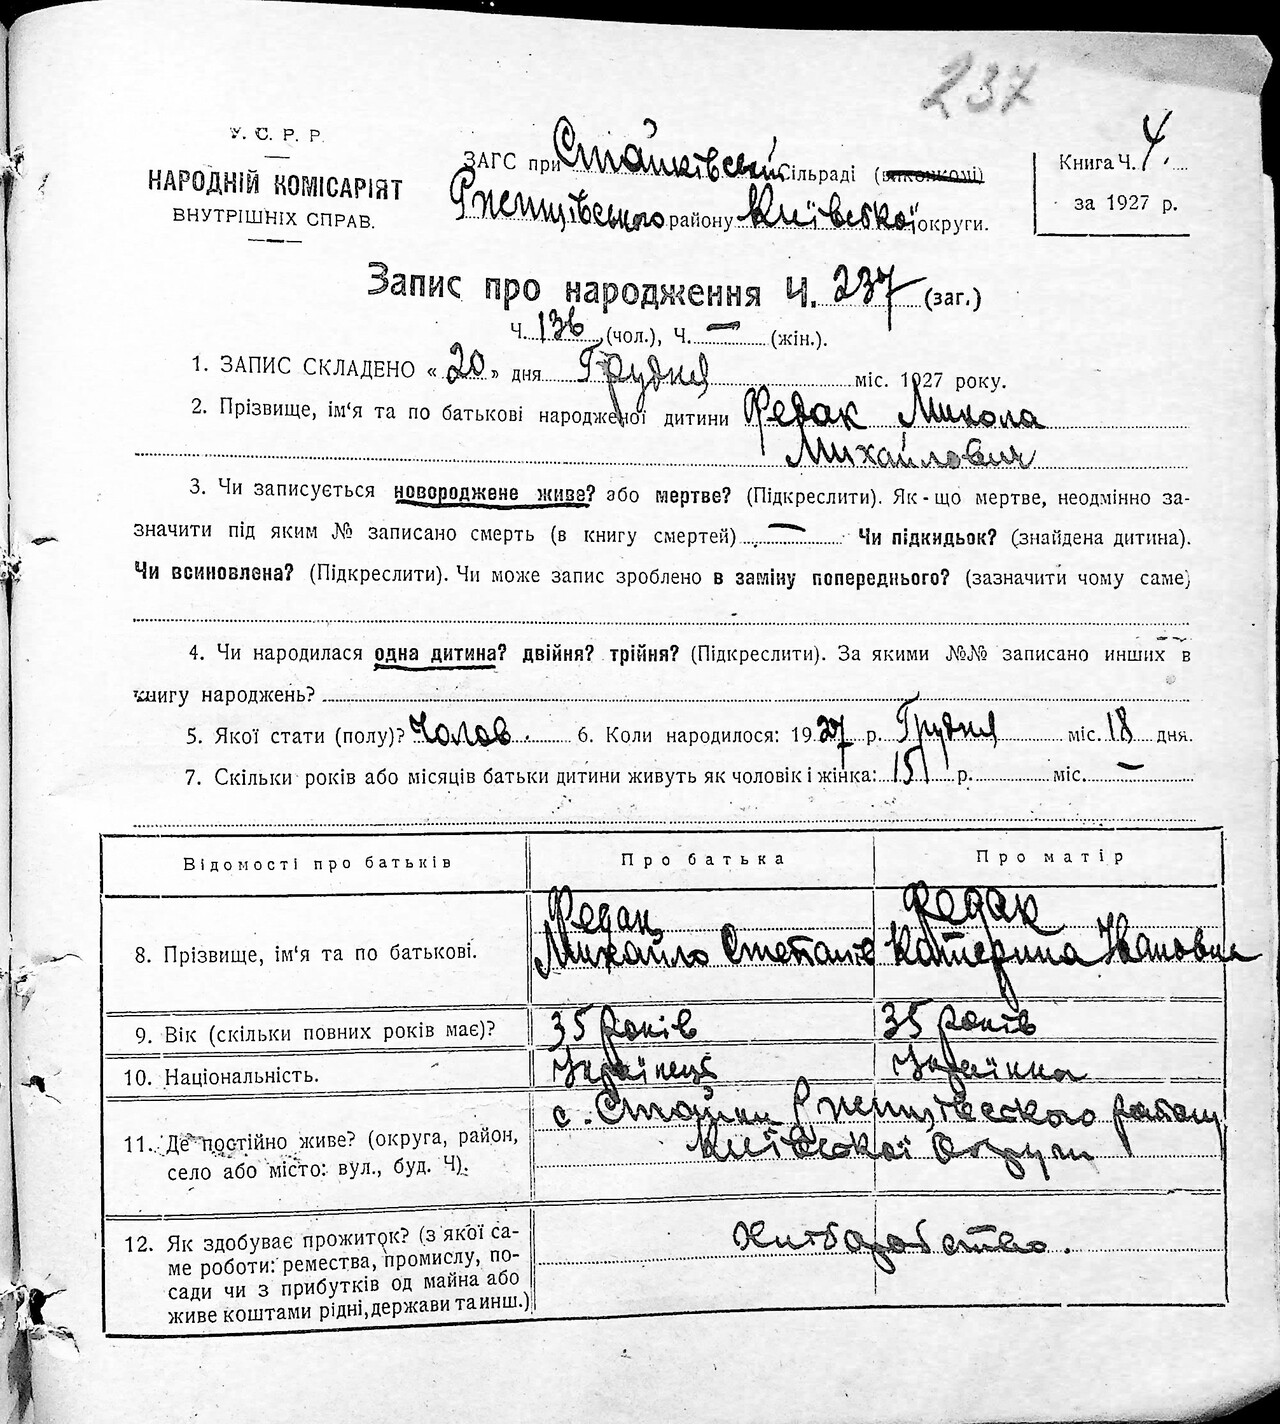 237
У. С. Р. Р.
НАРОДНІЙ КОМІСАРІЯТ
ВНУТРІШНІХ СПРАВ.
ЗАГС при Стайківській Сільраді (виконкомі)
Ржищівського району Київської округи.
Книга Ч. 4.
за 1927 р.
Запис про народження Ч. 237 (заг.)
Ч. 136 (чол.), Ч. — (жін.).
1. ЗАПИС СКЛАДЕНО « 20 » дня Грудня міс. 1927 року.
2. Прізвище, ім'я та по батькові народженої дитини Федак Микола
Михайлович
3. Чи записується новороджене живе? або мертве? (Підкреслити). Як-що мертве, неодмінно за-
значити під яким № записано смерть (в книгу смертей) — Чи підкидьок? (знайдена дитина).
Чи всиновлена? (Підкреслити). Чи може запис зроблено в заміну попереднього? (зазначити чому саме)
4. Чи народилася одна дитина? двійня? трійня? (Підкреслити). За якими №№ записано инших в
книгу народжень?
5. Якої стати (полу)? Чолов. 6. Коли народилося: 1927 р. Грудня міс. 18 дня.
7. Скільки років або місяців батьки дитини живуть як чоловік і жінка: 15 р. міс. —
Відомості про батьків Про батька Про матір
8. Прізвище, ім'я та по батькові.
Федак
Михайло Степанів
Федак
Катерина Івановна
9. Вік (скільки повних років має)? 35 років 35 років
10. Національність. Українець Українка
11. Де постійно живе? (округа, район,
село або місто: вул., буд. Ч).
с. Стайки Ржищівського району
Київської Округи
12. Як здобуває прожиток? (з якої са-
ме роботи: ремества, промислу, по-
сади чи з прибутків од майна або
живе коштами рідні, держави та инш.)
Хліборобство.